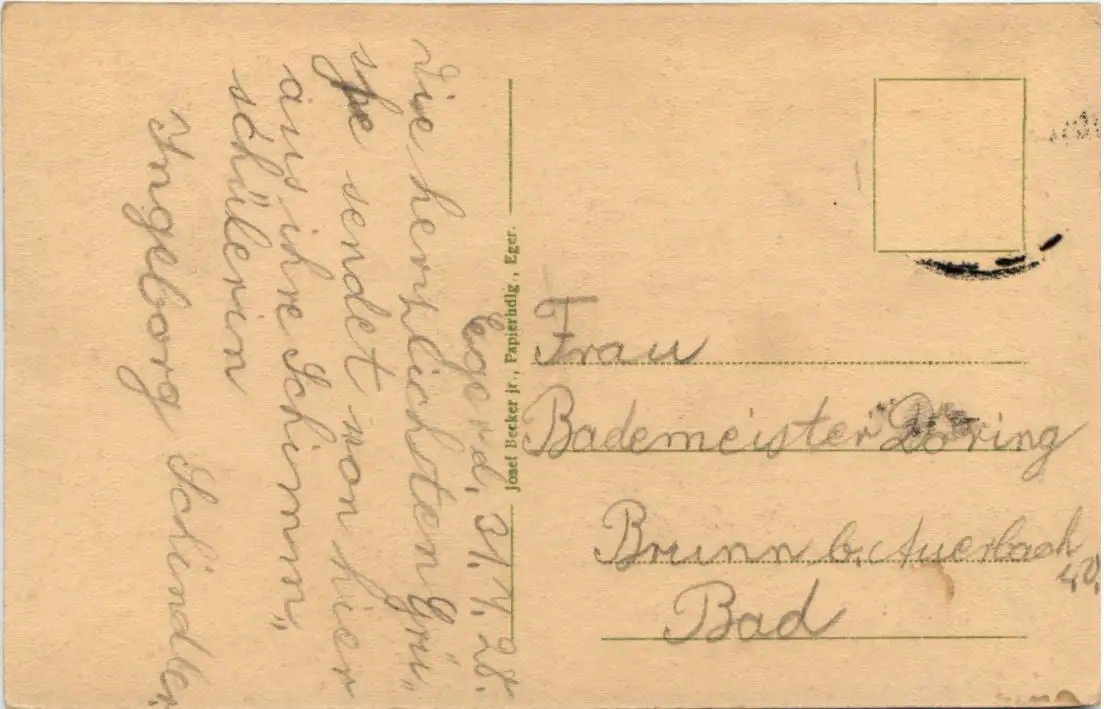 Eger, d. 31.7.28.
Die herzlichsten Grü„
ße sendet von hier
aus ihre Schimm„
schülerin
Ingelborg Schindler.
Josef Becker jr., Papierhdlg., Eger.
Frau
Bademeister Döring
Brunn b. Auerbach
Bad